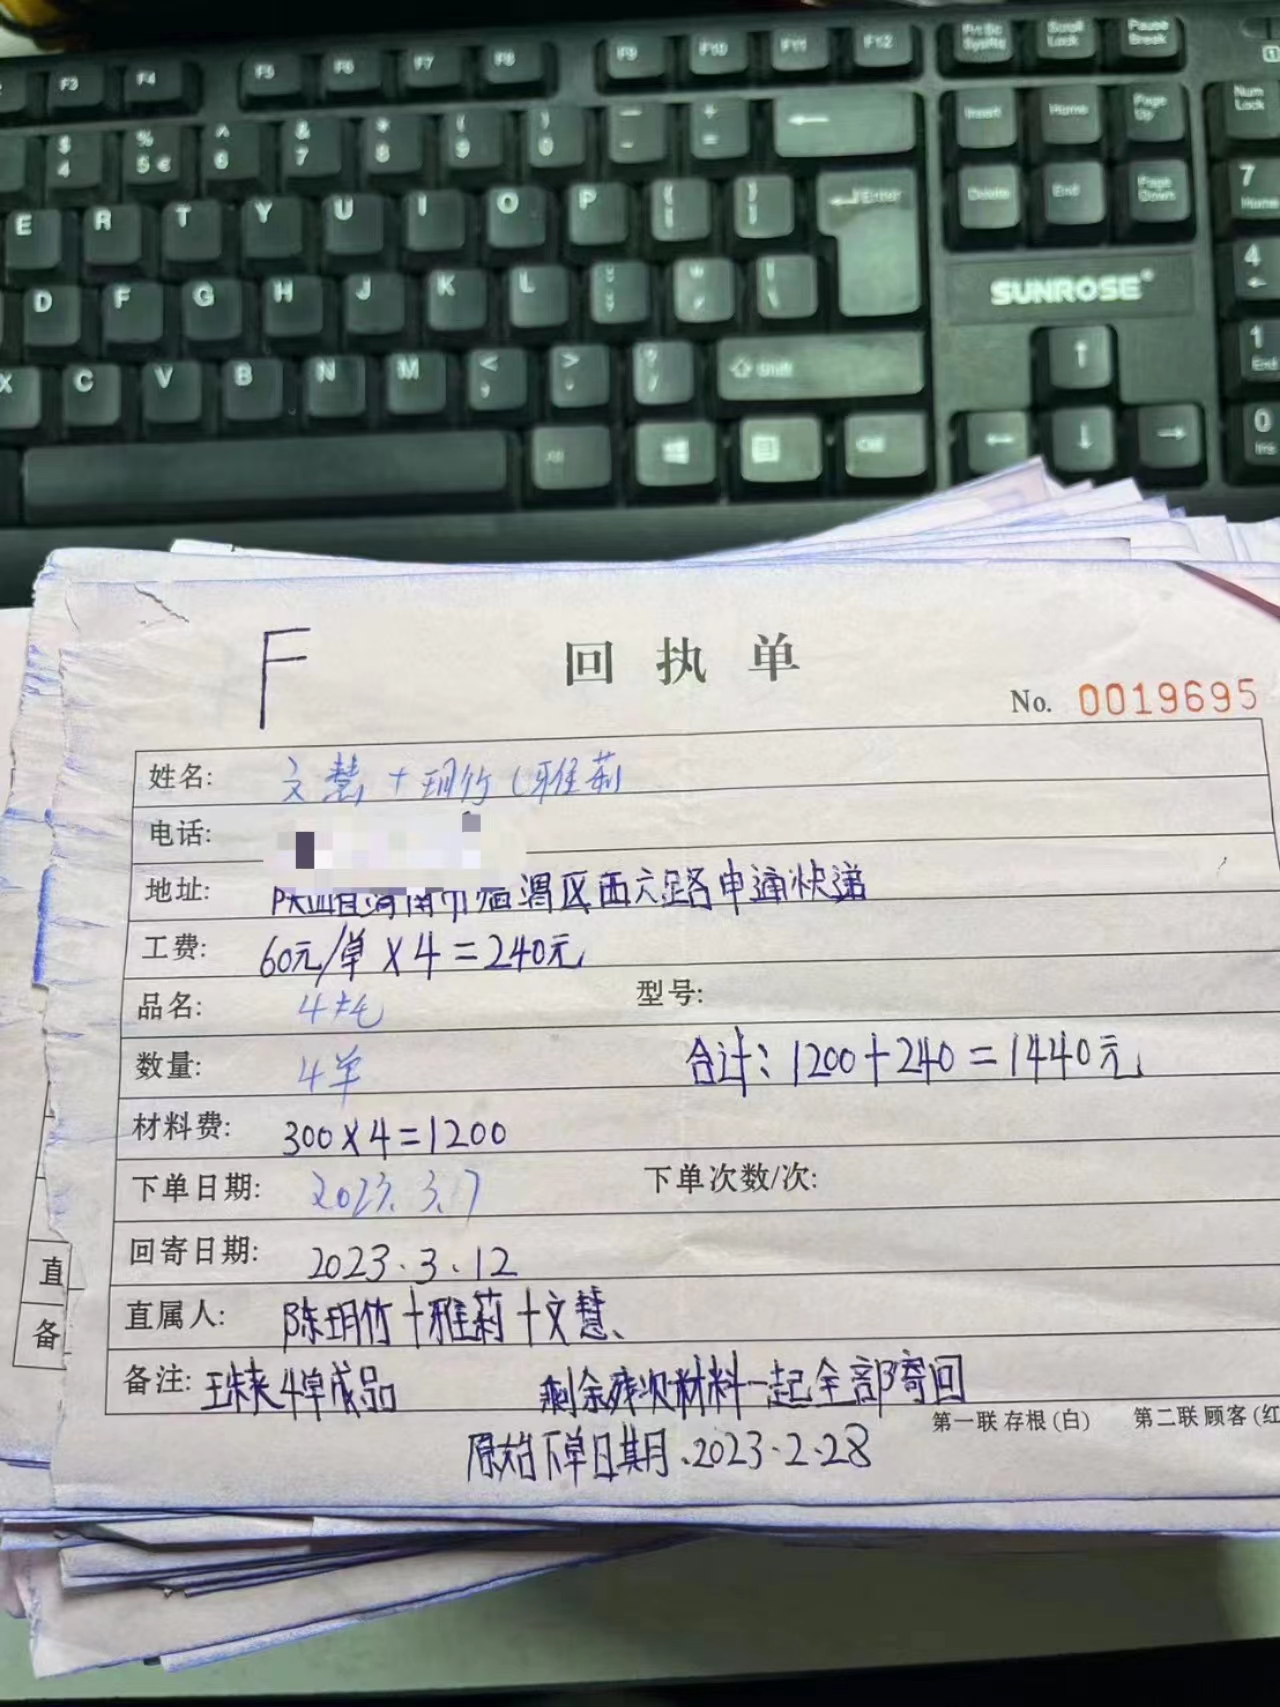 F3 F4 F5 F6 F7 F8 F9 F10 F11 F12 Prt Sc SysRq Scroll Lock Pause Break
$ 4 % 5 € ^ 6 & 7 * 8 ( 9 ) 0 — - + = ← Insert Home Page Up Num Lock
E R T Y U I O P { [ } ] Enter Delete End Page Down 7 Home
D F G H J K L SUNROSE 4 ←
X C V B N M < , > . ? / Shift ↑ 1 End
← ↓ → 0 Ins
F
回执单
No. 0019695
姓名: 文慧+玥竹(雅莉
电话:
地址: 临渭区西六路申通快递
工费: 60元/单×4=240元
品名: 型号:
数量: 4单 合计:1200+240=1440元
材料费: 300×4=1200
下单日期: 2023.3.7 下单次数/次:
回寄日期: 2023.3.12
直属人: 陈玥竹+雅莉+文慧、
备注: 珠夹4单成品 剩余残次材料一起全部寄回
第一联 存根(白) 第二联 顾客(红
原始下单日期.2023.2.28
直
备